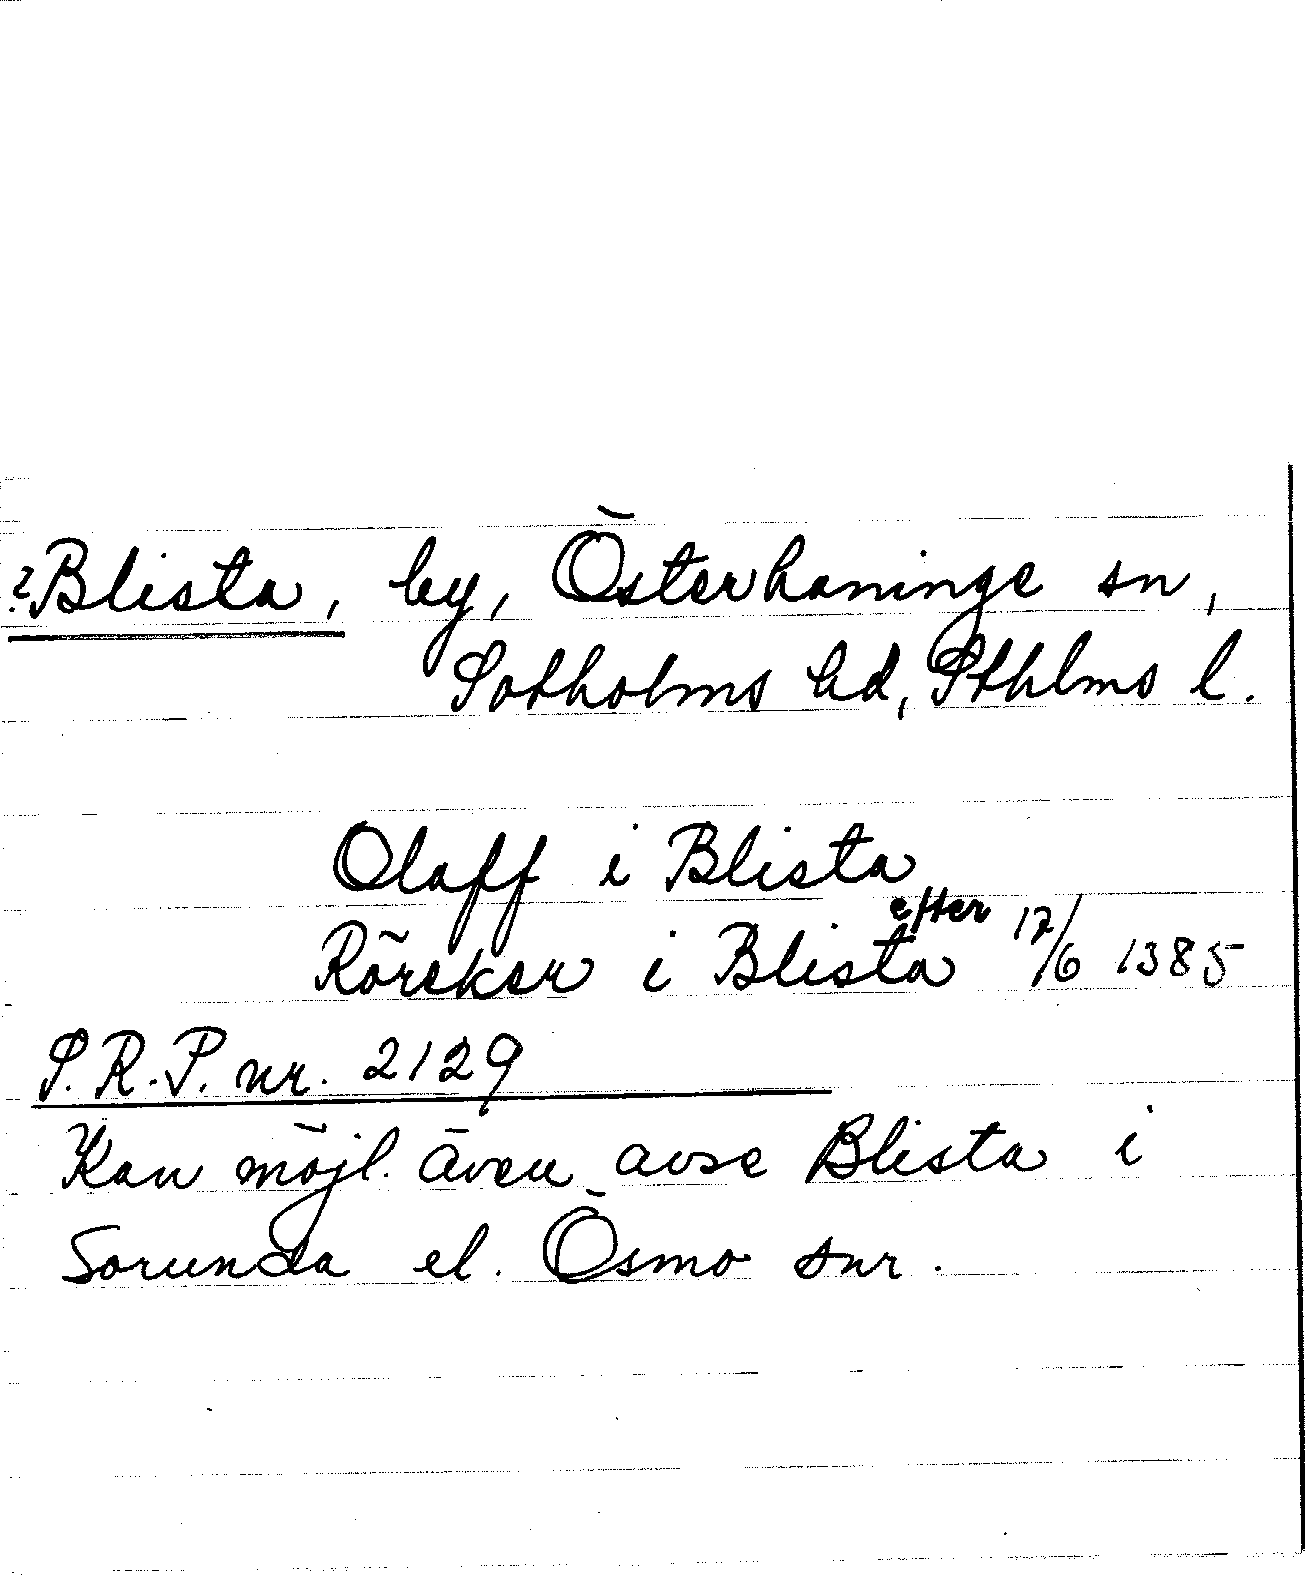 ?Blista, by, Österhaninge sn,
Sotholms hd, Sthlms l.
Olaff i Blista
Röreker i Blista efter 17/6 1385
S.R.P. nr. 2129
Kan möjl. även avse Blista i
Sorunda el. Ösmo snr.